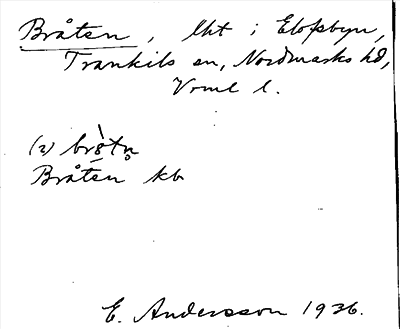 Bråten, lht i Elofsbyn,
Trankils sn, Nordmarks hd,
Vrml l.
(2) brå̀tn̥
Bråten kb
E. Andersson 1936.